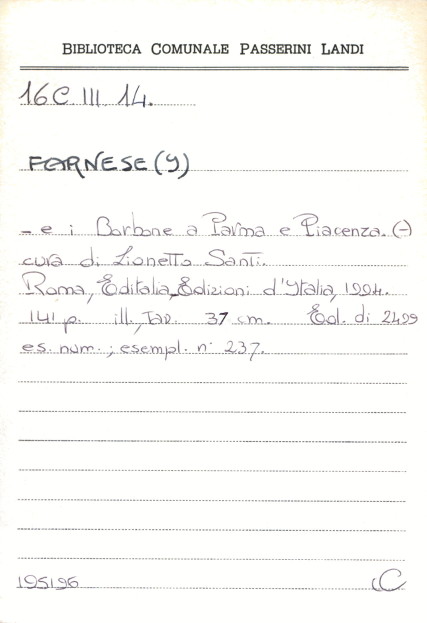 BIBLIOTECA COMUNALE PASSERINI LANDI
16C. III. 14.
FARNESE (I)
- e i Borbone a Parma e Piacenza. (-)
cura di Lionetto Santi.
Roma, Editalia, Edizioni d'Italia, 1994.
141 p. ill., tav. 37 cm. Ed. di 2499
es. num.; esempl. n° 237.
195196